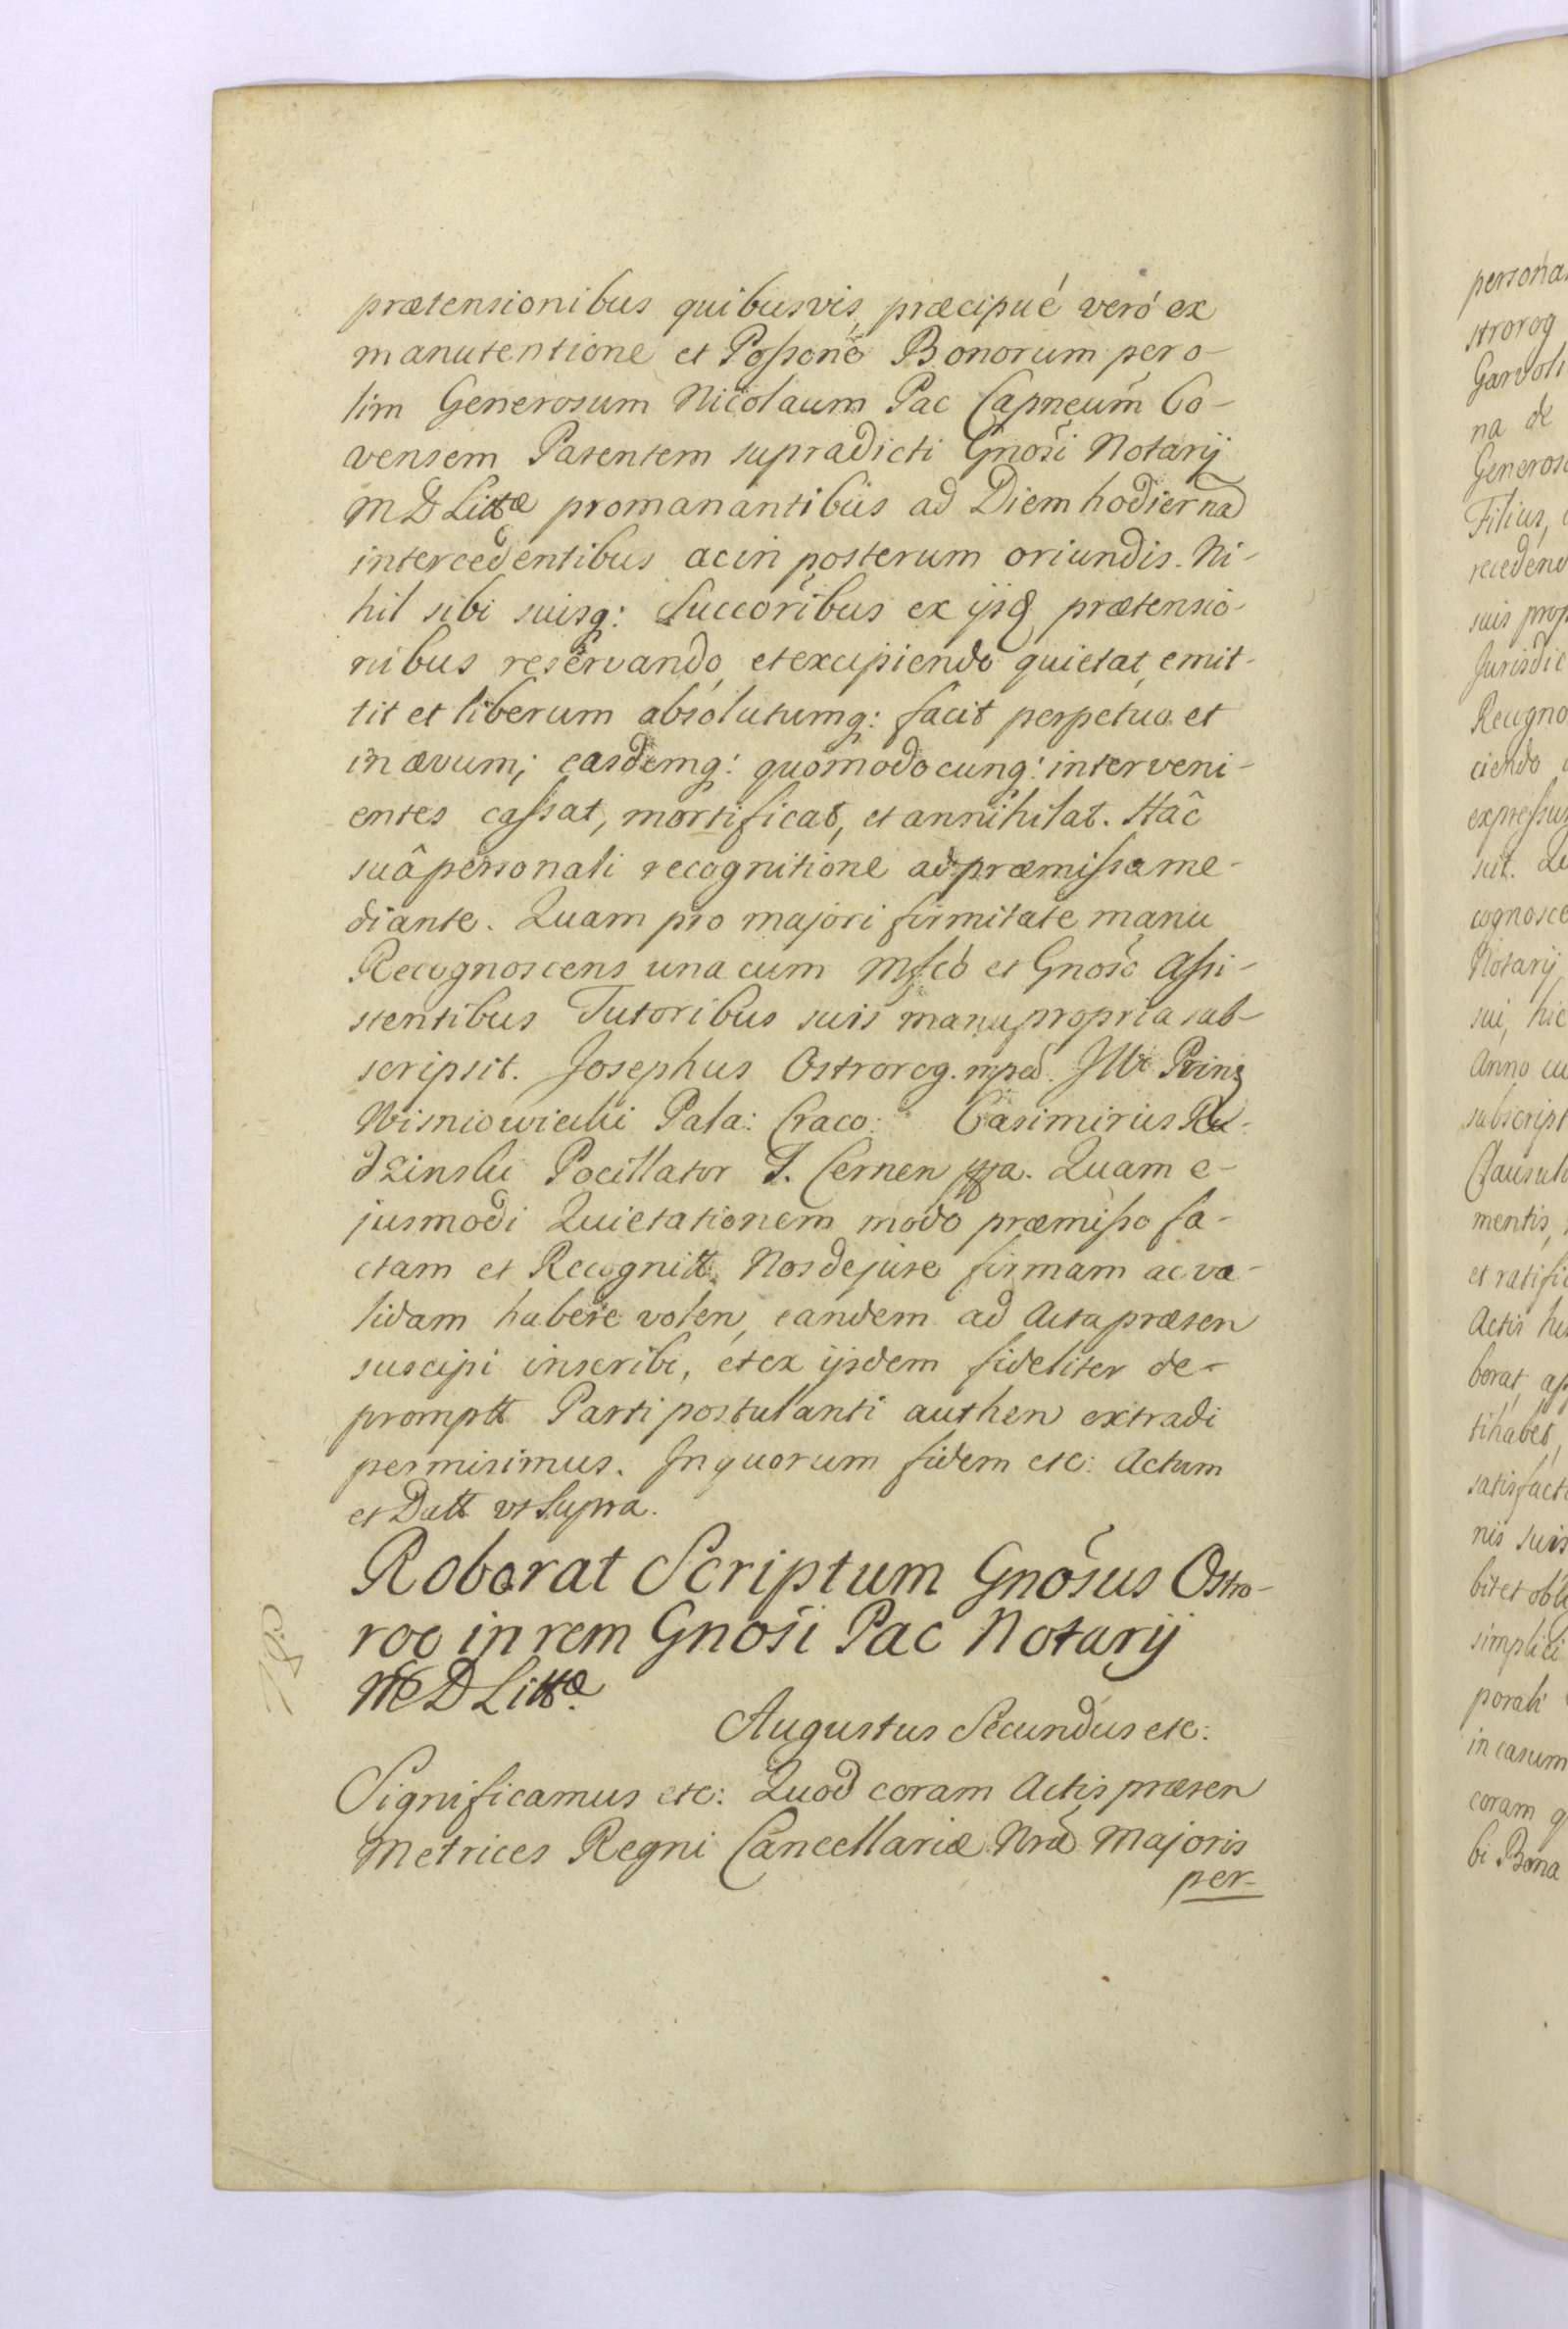 prætensionibus quibusvis, præcipué veró ex
manutentione et Poſsone Bonorum per o-
lim Generosum Nicolaum Pac Capneum Co-
vensem Parentem supradicti Gnosi Notarij
M D Littæ promanantibus ad Diem hodierna
intercedentibus ac in posterum oriundis. Ni-
hil sibi suisq: Succoribus ex ijsd prætensio-
nibus reservando, et excipiendo quietat, emit-
tit et liberum absolutumq: facit perpetuo et
in ævum; easdemq: quomodocunq: interveni-
entes caſsat, mortificat, et annihilat. Hâc
suâ personali recognitione ad præmiſsa me-
diante. Quam pro majori firmitate manu
Recognoscens una cum Mfco et Gnoso Aſsi-
stentibus Tutoribus suis manu propria sub-
scripsit. Josephus Ostrorog. mpa. Princ
Wisniowiecki Pala: Craco: Casimirus Ru-
dzinski Pocillator T. Cernen. Quam e-
jusmodi Quietationem modo præmiſso fa-
ctam et Recognitt Nos de jure firmam ac va-
lidam habere volen, eandem ad Acta præsen
suscipi inscribi, et ex ijsdem fideliter de-
promptt Parti postulanti authen extradi
permisimus. In quorum fidem etc: Actum
et Datt vt Supra.
Roborat Scriptum Gnosus Ostro-
rog in rem Gnosi Pac Notarij
M D Littæ.
Augustus Secundus etc:
Significamus etc: Quod coram Actis præsen
Metrices Regni Cancellariæ Nræ Majoris
per-
persona
strorog
Garvoli
na de
Generos
Filius,
recedend
suis prop
Jurisdic
Recogno
ciendo
expreſsu
sut.
cognosce
Notarij
sui, hic
Anno cu
subscript
Clausul
mentis,
et ratific
Actis hi
borat,
tihabet,
satisfact
nis suis
bit et obli
simplici
porali
in casum
coram q
bi Bona